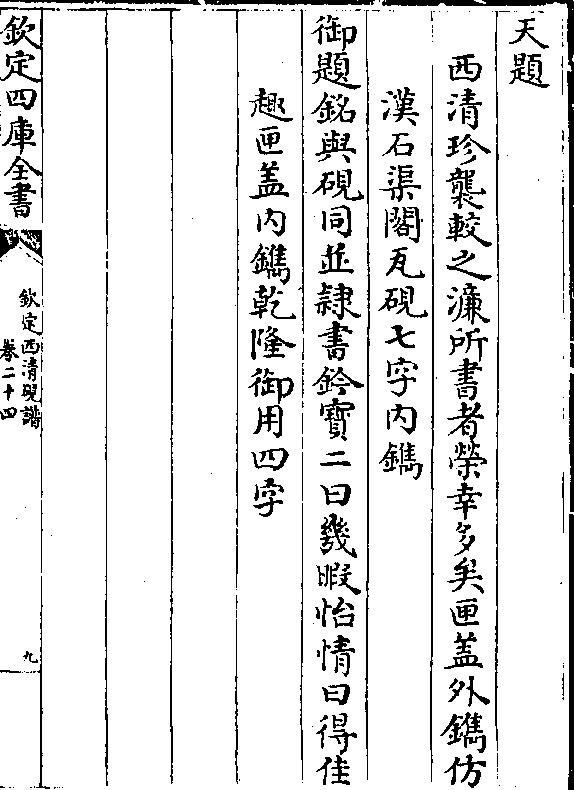 天題
西清珍襲較之濂所書者榮幸多矣匣蓋外鐫仿
漢石渠閣瓦硯七字内鐫
御題銘與硯同並隸書鈐寳二曰幾暇怡情曰得佳
趣匣蓋内鐫乾隆御用四字
欽定四庫全書
欽定西清硯譜
卷二十四
九